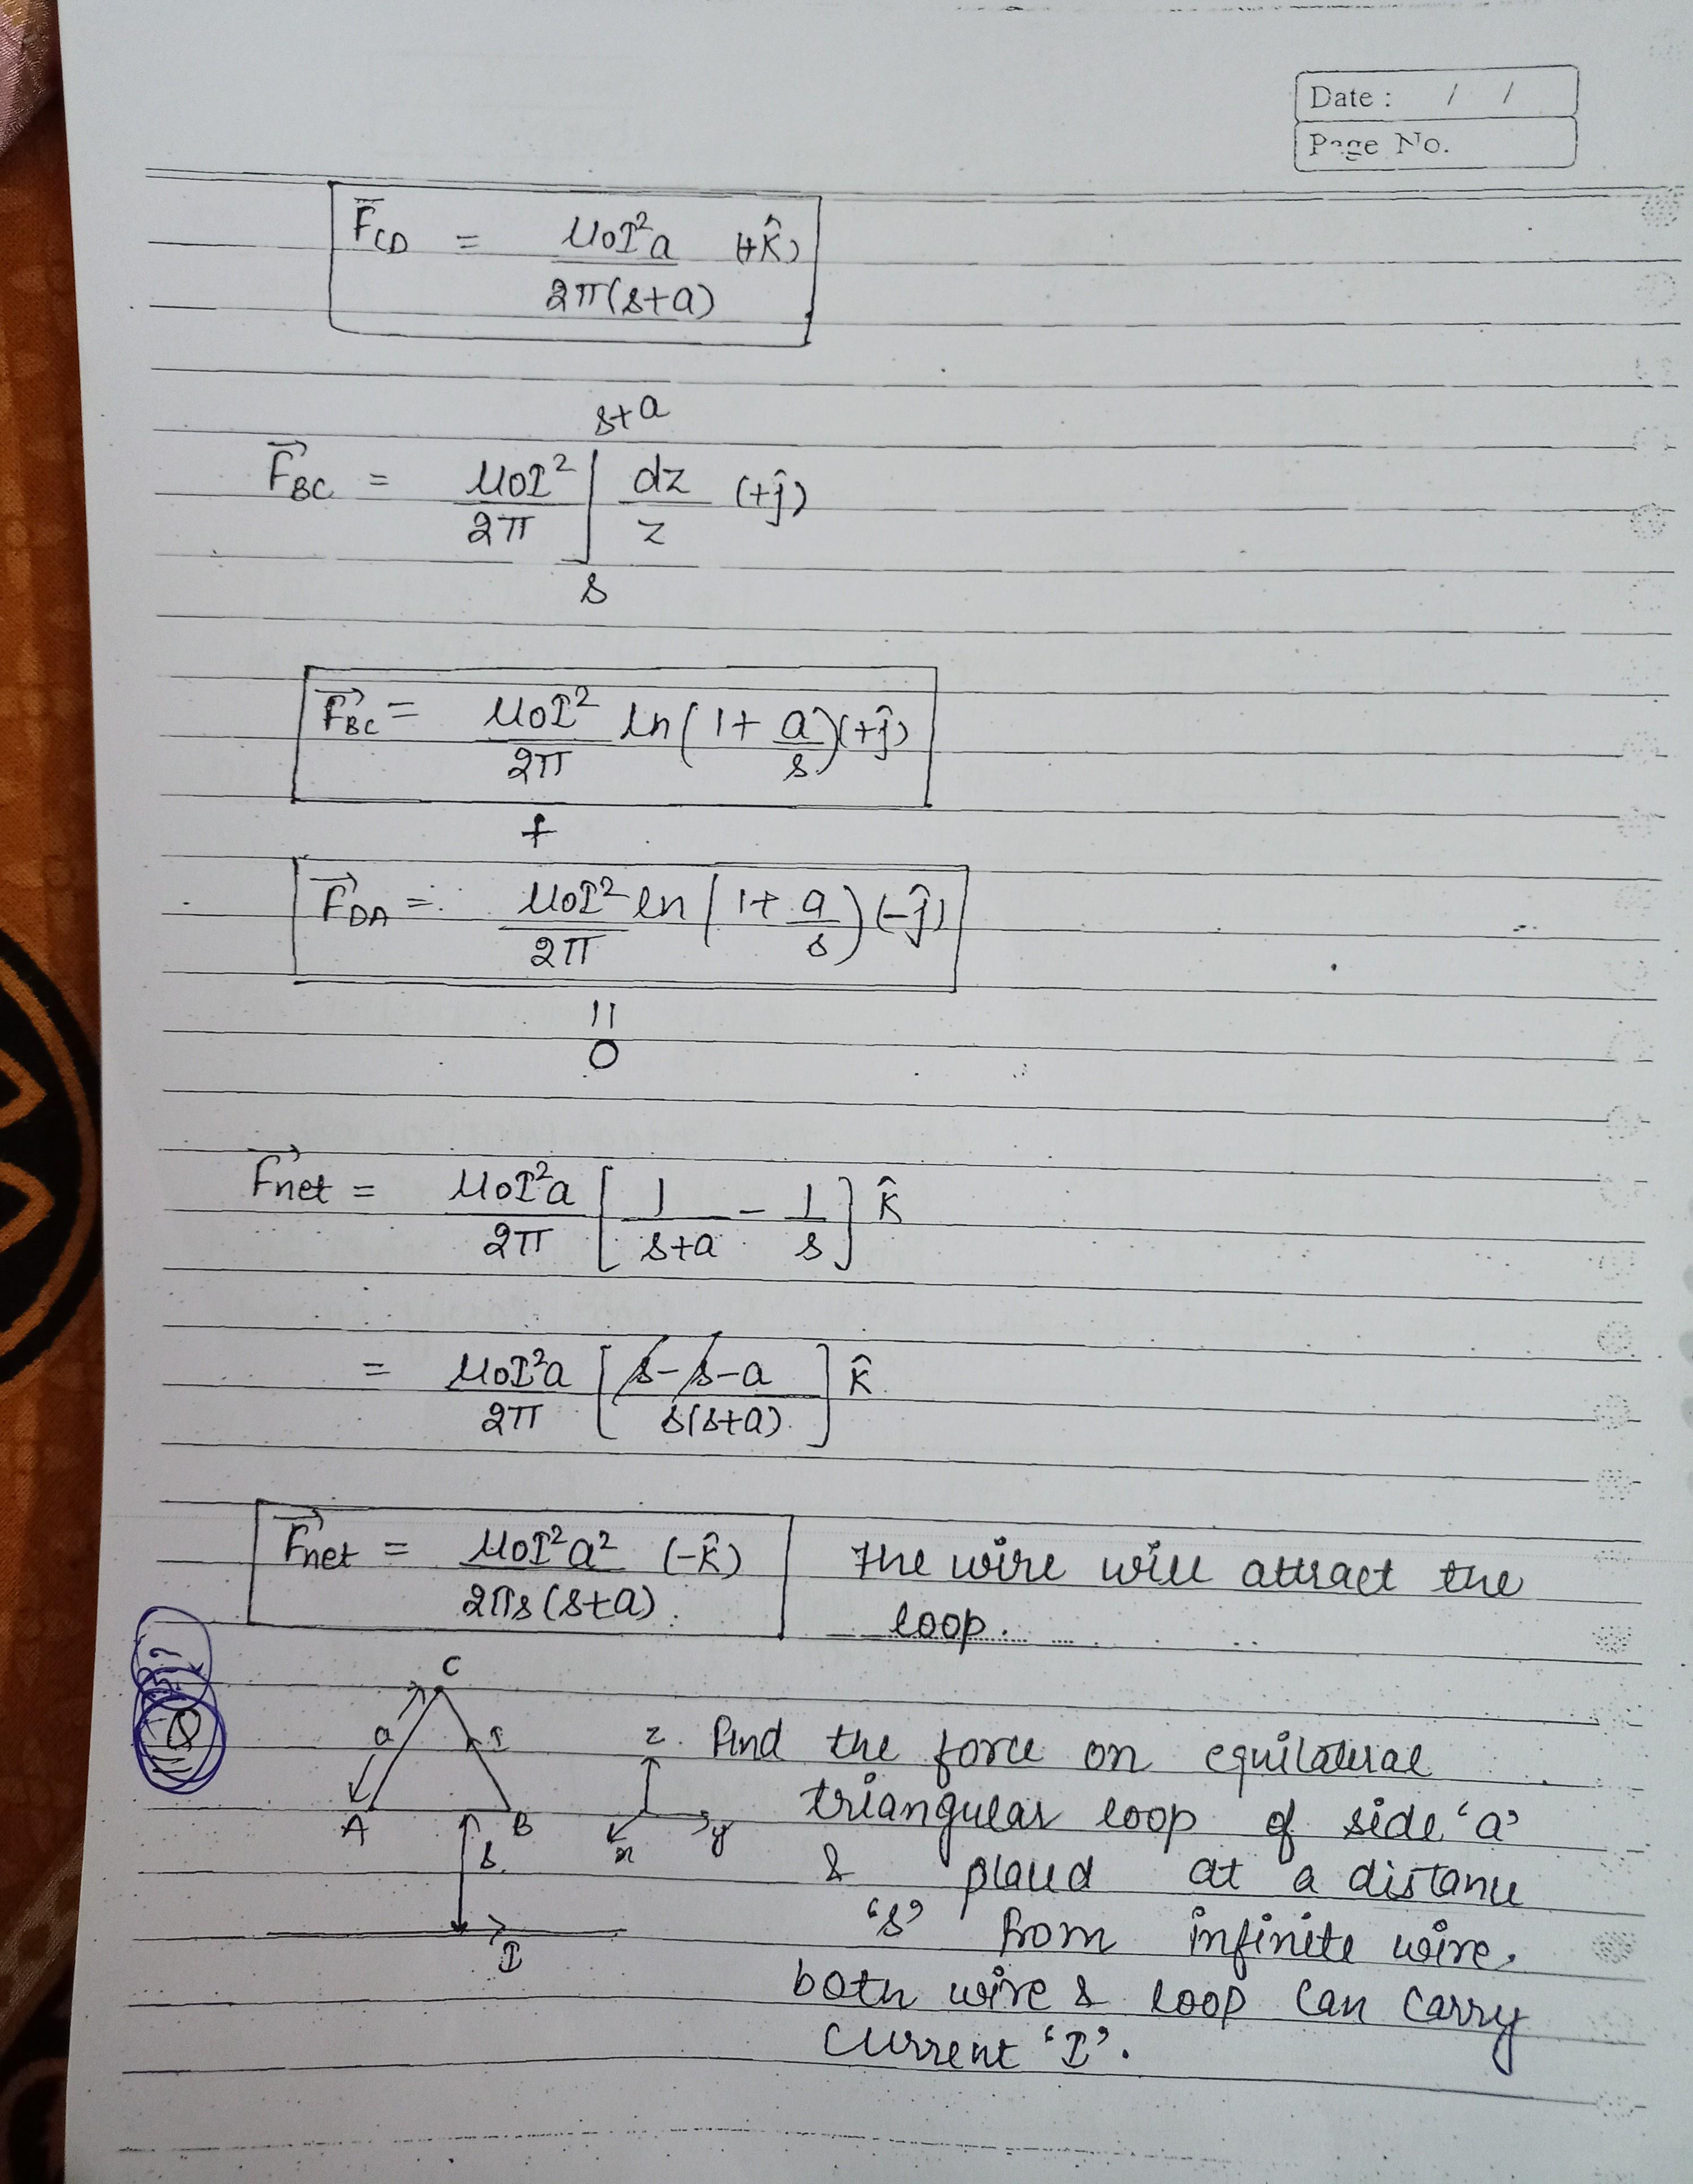 Date : / /
Page No.
F̅_CD = μ₀I²a / 2π(s+a) (+k̂)
F⃗_BC = μ₀I² / 2π ∫_s^{s+a} dz / z (+ĵ)
F⃗_BC = μ₀I² / 2π ln(1 + a/s)(+ĵ)
+
F⃗_DA = μ₀I² / 2π ln(1 + a/s)(-ĵ)
||
0
F⃗net = μ₀I²a / 2π [1/(s+a) - 1/s] k̂
= μ₀I²a / 2π [(s-s-a) / s(s+a)] k̂
F⃗net = μ₀I²a² / 2πs(s+a) (-k̂) The wire will attract the
loop.
Q
C
a
I
A
B
s
I
z
y
x
Find the force on equilateral
triangular loop of side 'a'
& placed at a distance
's' from infinite wire.
both wire & loop can carry
current 'I'.